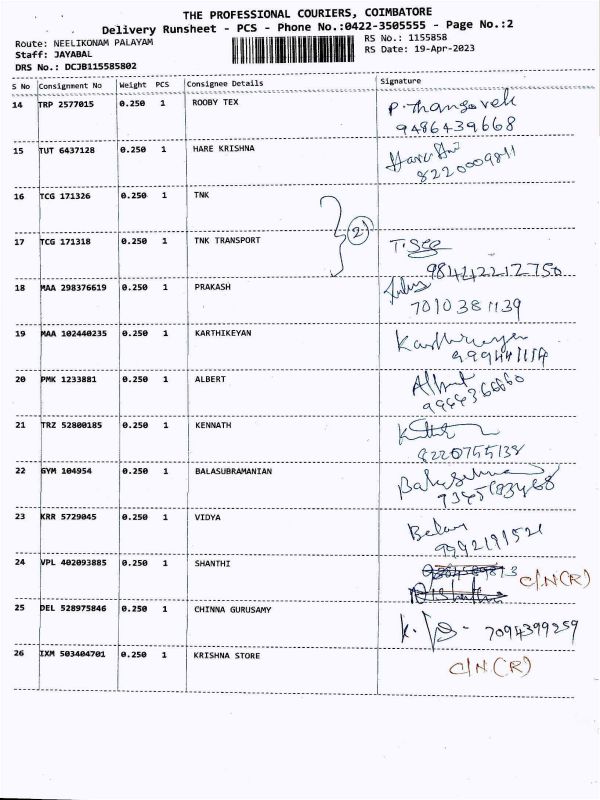 THE PROFESSIONAL COURIERS, COIMBATORE
Delivery Runsheet - PCS - Phone No.:0422-3505555 - Page No.:2
Route: NEELIKONAM PALAYAM
RS No.: 1155858
Staff: JAYABAL
RS Date: 19-Apr-2023
DRS No.: DCJB115585802
S No Consignment No Weight PCS Consignee Details Signature
14 TRP 2577015 0.250 1 ROOBY TEX P. Thangavek
9486439668
15 TUT 6437128 0.250 1 HARE KRISHNA
8220009811
16 TCG 171326 0.250 1 TNK
2
17 TCG 171318 0.250 1 TNK TRANSPORT
18 MAA 298376619 0.250 1 PRAKASH
7010381139
19 MAA 102440235 0.250 1 KARTHIKEYAN
20 PMK 1233881 0.250 1 ALBERT Albert
21 TRZ 52800185 0.250 1 KENNATH
8220755138
22 GYM 104954 0.250 1 BALASUBRAMANIAN
23 KRR 5729045 0.250 1 VIDYA
24 VPL 402093885 0.250 1 SHANTHI C/N(R)
25 DEL 528975846 0.250 1 CHINNA GURUSAMY 7094399259
26 IXM 503404701 0.250 1 KRISHNA STORE C/N(R)